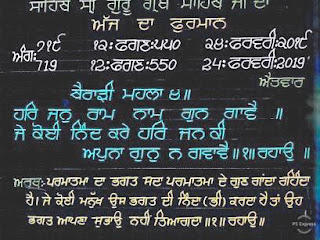 ਸਾਹਿਬ ਸ੍ਰੀ ਗੁਰੂ ਗ੍ਰੰਥ ਸਾਹਿਬ ਜੀ ਦਾ
ਅੱਜ ਦਾ ਫ਼ੁਰਮਾਨ
ਅੰਗ: ੭੧੯ ੧੨:ਫਗਣ:੫੫੦ ੨੪:ਫਰਵਰੀ:੨੦੧੯
719 12:ਫਗਣ:550 24:ਫਰਵਰੀ:2019
ਐਤਵਾਰ
ਬੈਰਾੜੀ ਮਹਲਾ ੪॥
ਹਰਿ ਜਨੁ ਰਾਮ ਨਾਮ ਗੁਨ ਗਾਵੈ ॥
ਜੇ ਕੋਈ ਨਿੰਦ ਕਰੇ ਹਰਿ ਜਨ ਕੀ
ਅਪੁਨਾ ਗੁਨੁ ਨ ਗਵਾਵੈ ॥੧॥ ਰਹਾਉ ॥
ਅਰਥ: ਪਰਮਾਤਮਾ ਦਾ ਭਗਤ ਸਦਾ ਪਰਮਾਤਮਾ ਦੇ ਗੁਣ ਗਾਂਦਾ ਰਹਿੰਦਾ
ਹੈ। ਜੇ ਕੋਈ ਮਨੁੱਖ ਉਸ ਭਗਤ ਦੀ ਨਿੰਦਾ (ਭੀ) ਕਰਦਾ ਹੈ ਤਾਂ ਉਹ
ਭਗਤ ਆਪਣਾ ਸੁਭਾਉ ਨਹੀਂ ਤਿਆਗਦਾ ॥੧॥ ਰਹਾਉ॥
PS Express